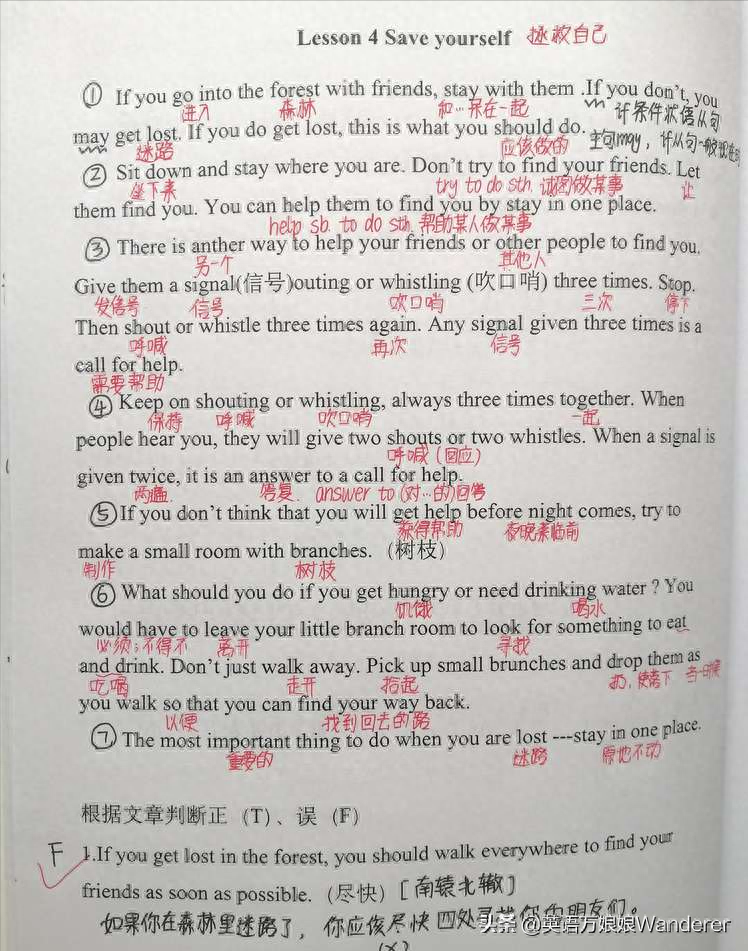 Lesson 4 Save yourself 拯救自己
① If you go into the forest with friends, stay with them .If you don't, you
进入 森林 和…呆在一起 if条件状语从句
may get lost. If you do get lost, this is what you should do.
迷路 应该做的 主句may,if从句一般现在时
② Sit down and stay where you are. Don't try to find your friends. Let
坐下来 try to do sth. 试图做某事 让
them find you. You can help them to find you by stay in one place.
help sb. to do sth. 帮助某人做某事
③ There is anther way to help your friends or other people to find you.
另一个 其他人
Give them a signal(信号)outing or whistling (吹口哨) three times. Stop.
发信号 信号 吹口哨 三次 停下
Then shout or whistle three times again. Any signal given three times is a
呼喊 再次 信号
call for help.
需要帮助
④ Keep on shouting or whistling, always three times together. When
保持 呼喊 吹口哨 一起
people hear you, they will give two shouts or two whistles. When a signal is
呼喊(回应)
given twice, it is an answer to a call for help.
两遍. 答复. answer to (对…的)回答
⑤ If you don't think that you will get help before night comes, try to
获得帮助 夜晚来临前
make a small room with branches. (树枝)
制作 树枝
⑥ What should you do if you get hungry or need drinking water ? You
饥饿 喝水
would have to leave your little branch room to look for something to eat
必须;不得不 离开 寻找
and drink. Don't just walk away. Pick up small brunches and drop them as
吃喝 走开 拾起 扔,使落下 当…时候
you walk so that you can find your way back.
以便 找到回去的路
⑦ The most important thing to do when you are lost ---stay in one place.
重要的 迷路 原地不动
根据文章判断正 (T)、误 (F)
F 1.If you get lost in the forest, you should walk everywhere to find your
friends as soon as possible. (尽快) [南辕北辙]
如果你在森林里迷路了, 你应该尽快四处寻找你的朋友们。
(×)
头条 @英语万娘娘Wanderer